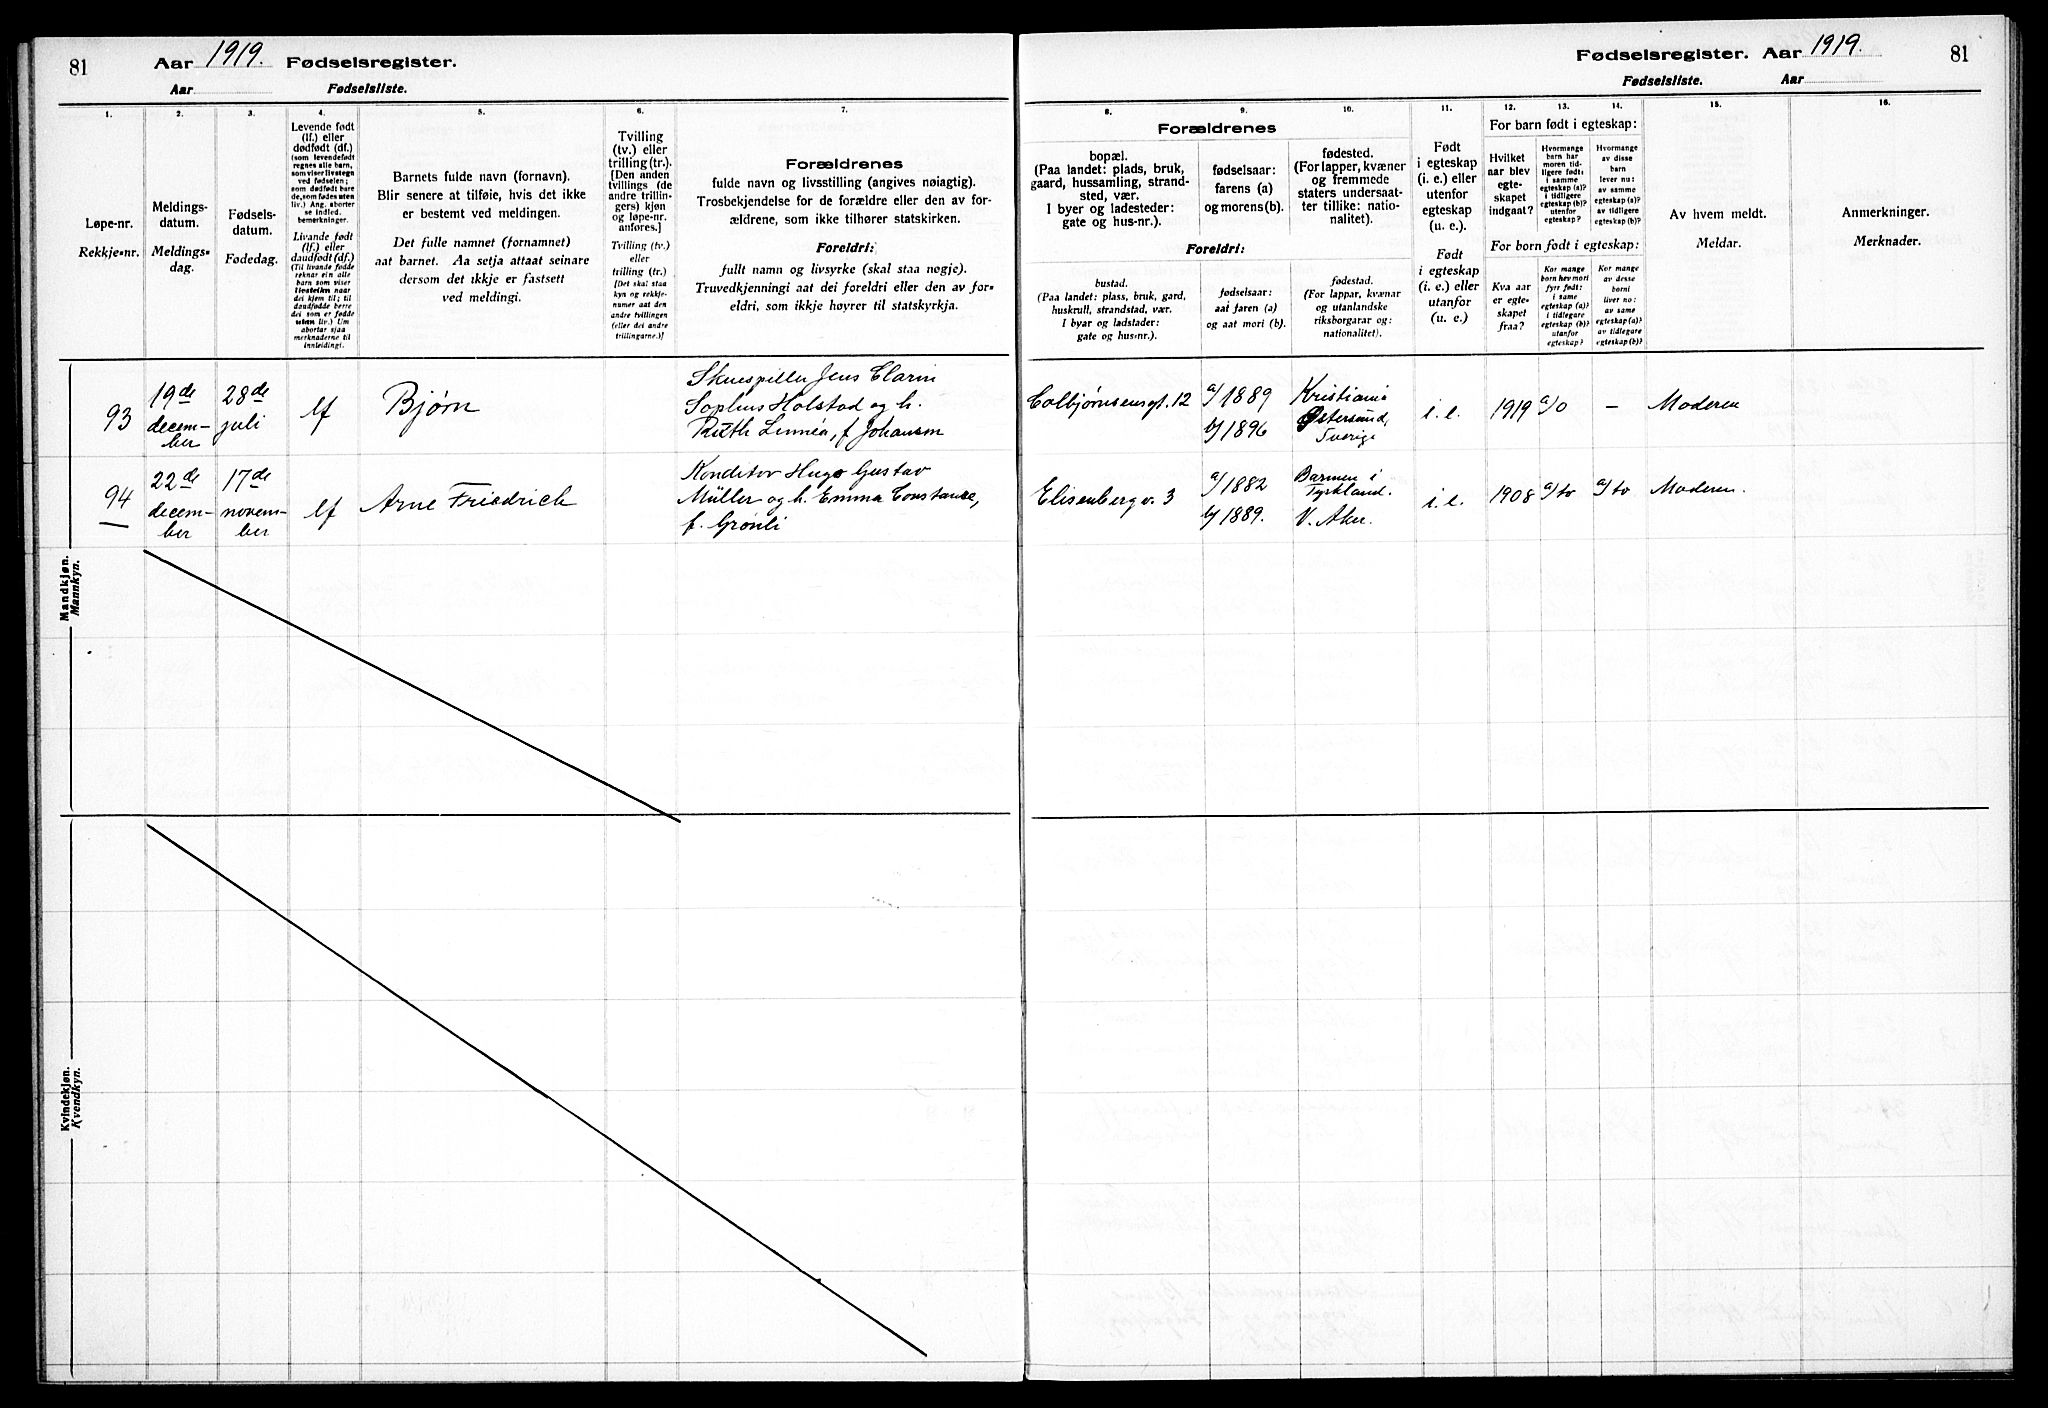 81
Aar 1919. Fødselsregister.
Aar Fødselsliste.
1.
2.
3.
4.
5.
6.
7.
Løpe-nr.
Rekkje-nr.
Meldings-
datum.
Meldings-
dag.
Fødsels-
datum.
Fødedag.
Levende født
(lf.) eller
dødfødt (df.)
(som levendefødt
regnes alle barn,
som viser livstegn
ved fødselen;
som dødfødt bare
de, som fødes uten
liv.) Ang. aborter
se indled.
bemerkninger.
Livande født
(lf.) eller
daudfødt (df.)
(Til livande fødde
reknar ein alle
barn som viser
livsteikn naar
dei kjem til; til
daudfødde berre
dei som er fødde
uten liv.) Um
abortar sjaa
merknaderne til
innleidingi.
Barnets fulde navn (fornavn).
Blir senere at tilføie, hvis det ikke
er bestemt ved meldingen.
Det fulle namnet (fornamnet)
aat barnet. Aa setja attaat seinare
dersom det ikkje er fastsett
ved meldingi.
Tvilling
(tv.) eller
trilling (tr.).
[Den anden
tvillings (de
andre trillin-
gers) kjøn
og løpe-nr.
anføres.]
Tvilling (tv.)
eller
trilling (tr.)
[Det skal staa
kyn og rekkje-
numer aat den
andre tvillingen
(eller dei andre
trillingarne.)]
Forældrenes
fulde navn og livsstilling (angives nøiagtig).
Trosbekjendelse for de forældre eller den av for-
ældrene, som ikke tilhører statskirken.
Foreldri:
fullt namn og livsyrke (skal staa nøgje).
Truvedkjenningi aat dei foreldri eller den av for-
eldri, som ikkje høyrer til statskyrkja.
Mandkjøn.
Mannkyn.
93
19de
decem-
ber
28de
juli
lf
Bjørn
Skuespiller Jens Clarin
Sophus Holstad og h.
Ruth Linnéa, f. Johansen
94
22de
decem-
ber
17de
novem-
ber
lf
Arne Friedrich
Konditor Hugo Gustav
Müller og h. Emma Constanse,
f. Grønli
Kvindekjøn.
Kvendkyn.
Fødselsregister. Aar 1919.
81
Fødselsliste. Aar
8.
9.
10.
11.
12.
13.
14.
15.
16.
Forældrenes
bopæl.
(Paa landet: plads, bruk,
gaard, hussamling, strand-
sted, vær.
I byer og ladesteder:
gate og hus-nr.).
fødselsaar:
farens (a)
og morens (b).
fødested.
(For lapper, kvæner
og fremmede
staters undersaat-
ter tillike: natio-
nalitet).
Foreldri:
bustad.
(Paa landet: plass, bruk, gard,
huskrull, strandstad, vær.
I byar og ladstader:
gate og hus-nr.).
fødselsaar:
aat faren (a)
og aat mori (b).
fødestad.
(For lappar, kvænar
og utanlandske
riksborgarar og:
nationalitet).
Født
i egteskap
(i. e.) eller
utenfor
egteskap
(u. e.).
Født
i egteskap
(i. e.) eller
utanfor
(u. e.)
For barn født i egteskap:
Hvilket
aar blev
egte-
skapet
indgaat?
Hvormange
barn har
moren tid-
ligere født:
i samme
egteskap (a)?
i tidligere
egteskap (b)?
utenfor
egteskap?
Hvormange
av disse
barn
lever nu:
av samme
egteskap (a)?
av tidligere
egteskap (b)?
For born født i egteskap:
Kva aar
er egte-
skapet
fraa?
Kor mange
born hev mori
fyrr født:
i same
egteskap (a)?
i tidlegare
egteskap (b)?
utanfor
egteskap?
Kor mange
av desse
borni
liver no:
av same
egteskap (a)?
av tidlegare
egteskap (b)?
Av hvem meldt.
Meldar.
Anmerkninger.
Merknader.
Colbjørnsensgt. 12
a/ 1889
b/ 1896
Kristiania
Østersund,
Sverige
i. e.
1919
a/0
–
Moderen
Elisenbergv. 3
a/ 1882
b/ 1889.
Barmen i
Tyskland.
V. Aker.
i. e.
1908
a/to
a/to
Moderen.